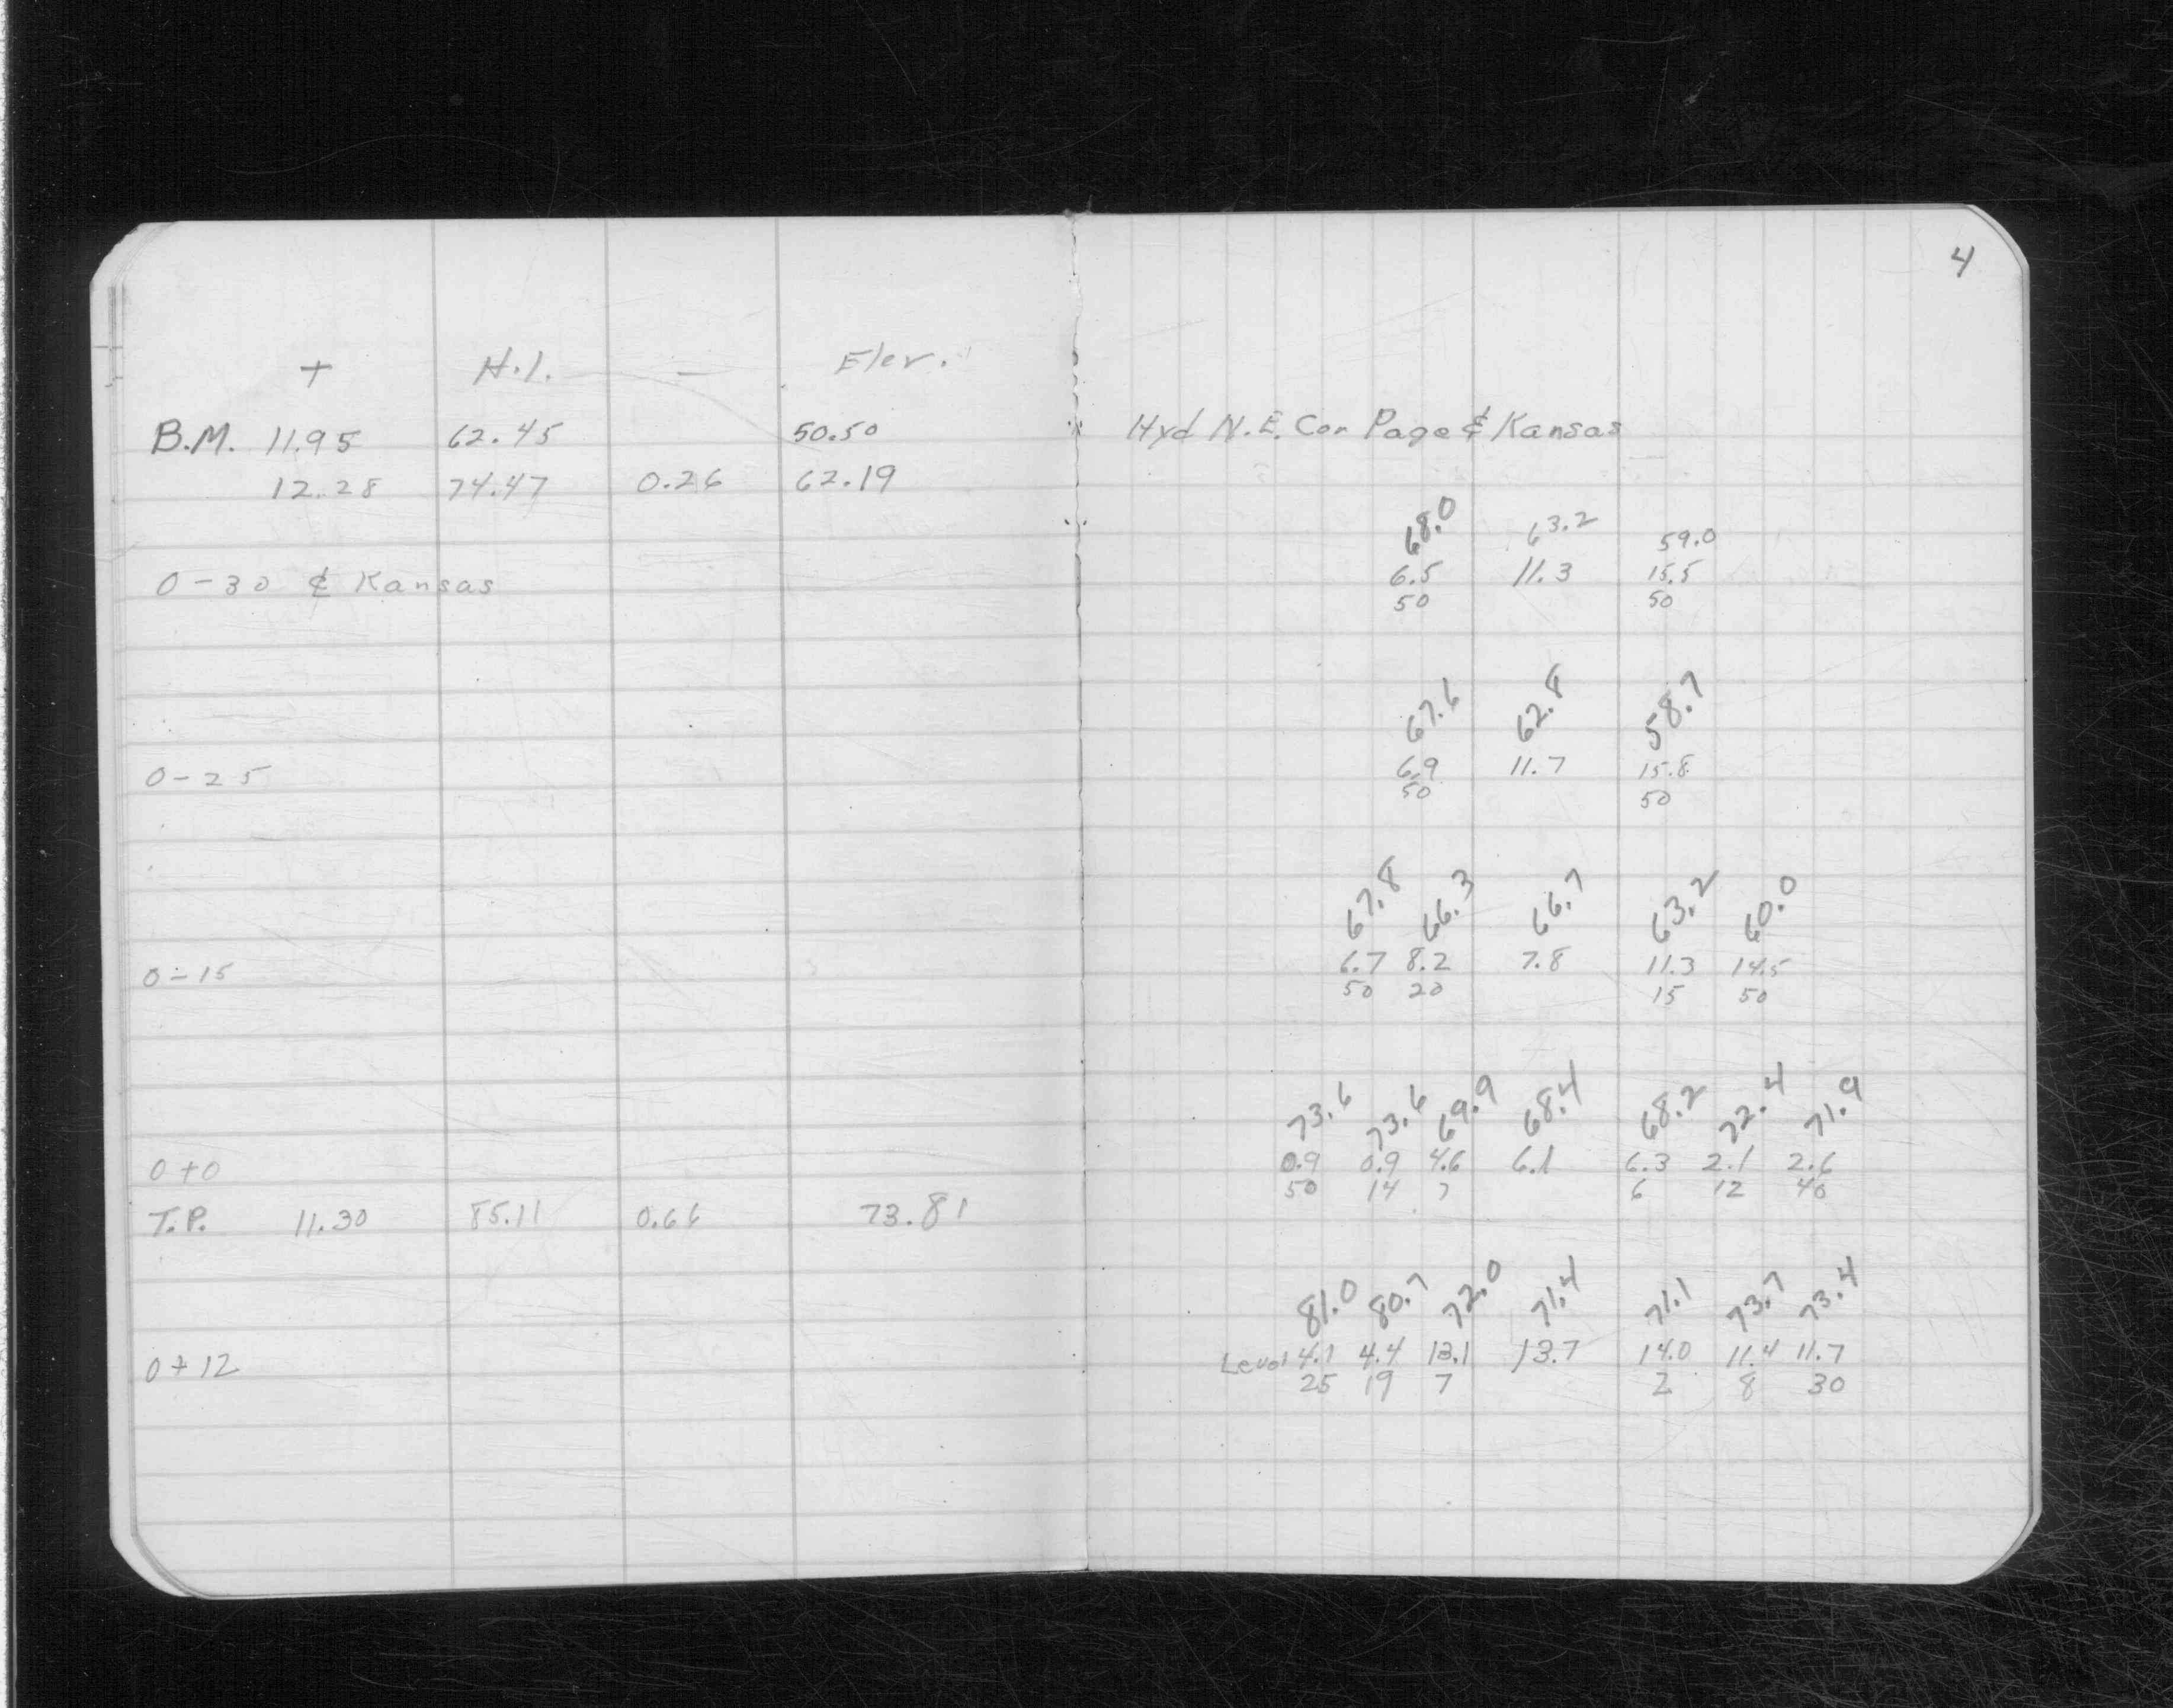 4
+ H.I. — Elev.
B.M. 11.95 62.45 50.50 Hyd N.E. Cor Page & Kansas
12.28 74.47 0.26 62.19
68.0 63.2 59.0
0-30 ¢ Kansas 6.5 11.3 15.5
50 50
67.6 62.8 58.7
0-25 6.9 11.7 15.8
50 50
67.8 66.3 66.7 63.2 60.0
0-15 6.7 8.2 7.8 11.3 14.5
50 20 15 50
73.6 73.6 69.9 68.4 68.2 72.4 71.9
0+0 0.9 0.9 4.6 6.1 6.3 2.1 2.6
50 14 7 6 12 40
T.P. 11.30 85.11 0.66 73.81
81.0 80.7 72.0 71.4 71.1 73.7 73.4
0+12 Level 4.1 4.4 13.1 13.7 14.0 11.4 11.7
25 19 7 2 8 30